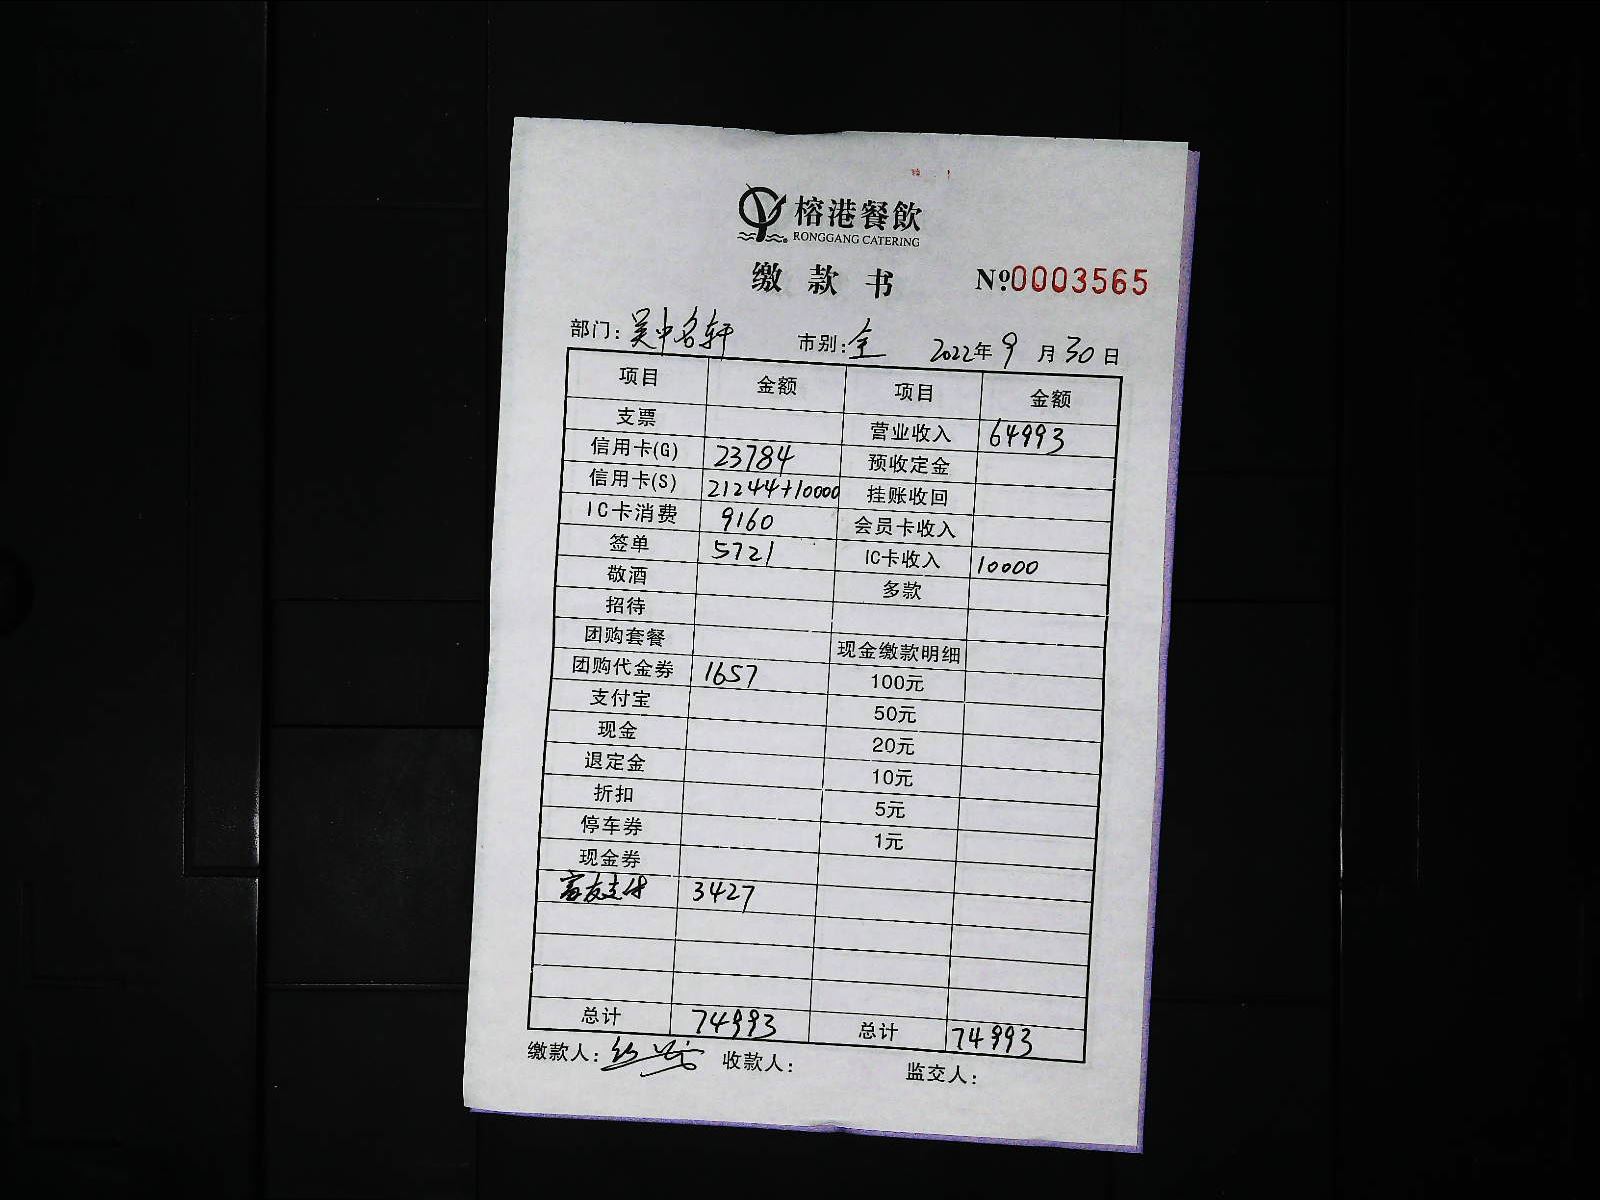 榕港餐飲
RONGGANG CATERING
缴款书 №0003565
部门: 吴中名轩 市别: 全 2022年9月30日
项目 金额 项目 金额
支票 营业收入 64993
信用卡(G) 23784 预收定金
信用卡(S) 21244+10000 挂账收回
IC卡消费 9160 会员卡收入
签单 5721 IC卡收入 10000
敬酒 多款
招待
团购套餐 现金缴款明细
团购代金券 1657 100元
支付宝 50元
现金 20元
退定金 10元
折扣 5元
停车券 1元
现金券
富友支付 3427
总计 74993 总计 74993
缴款人: 收款人: 监交人: